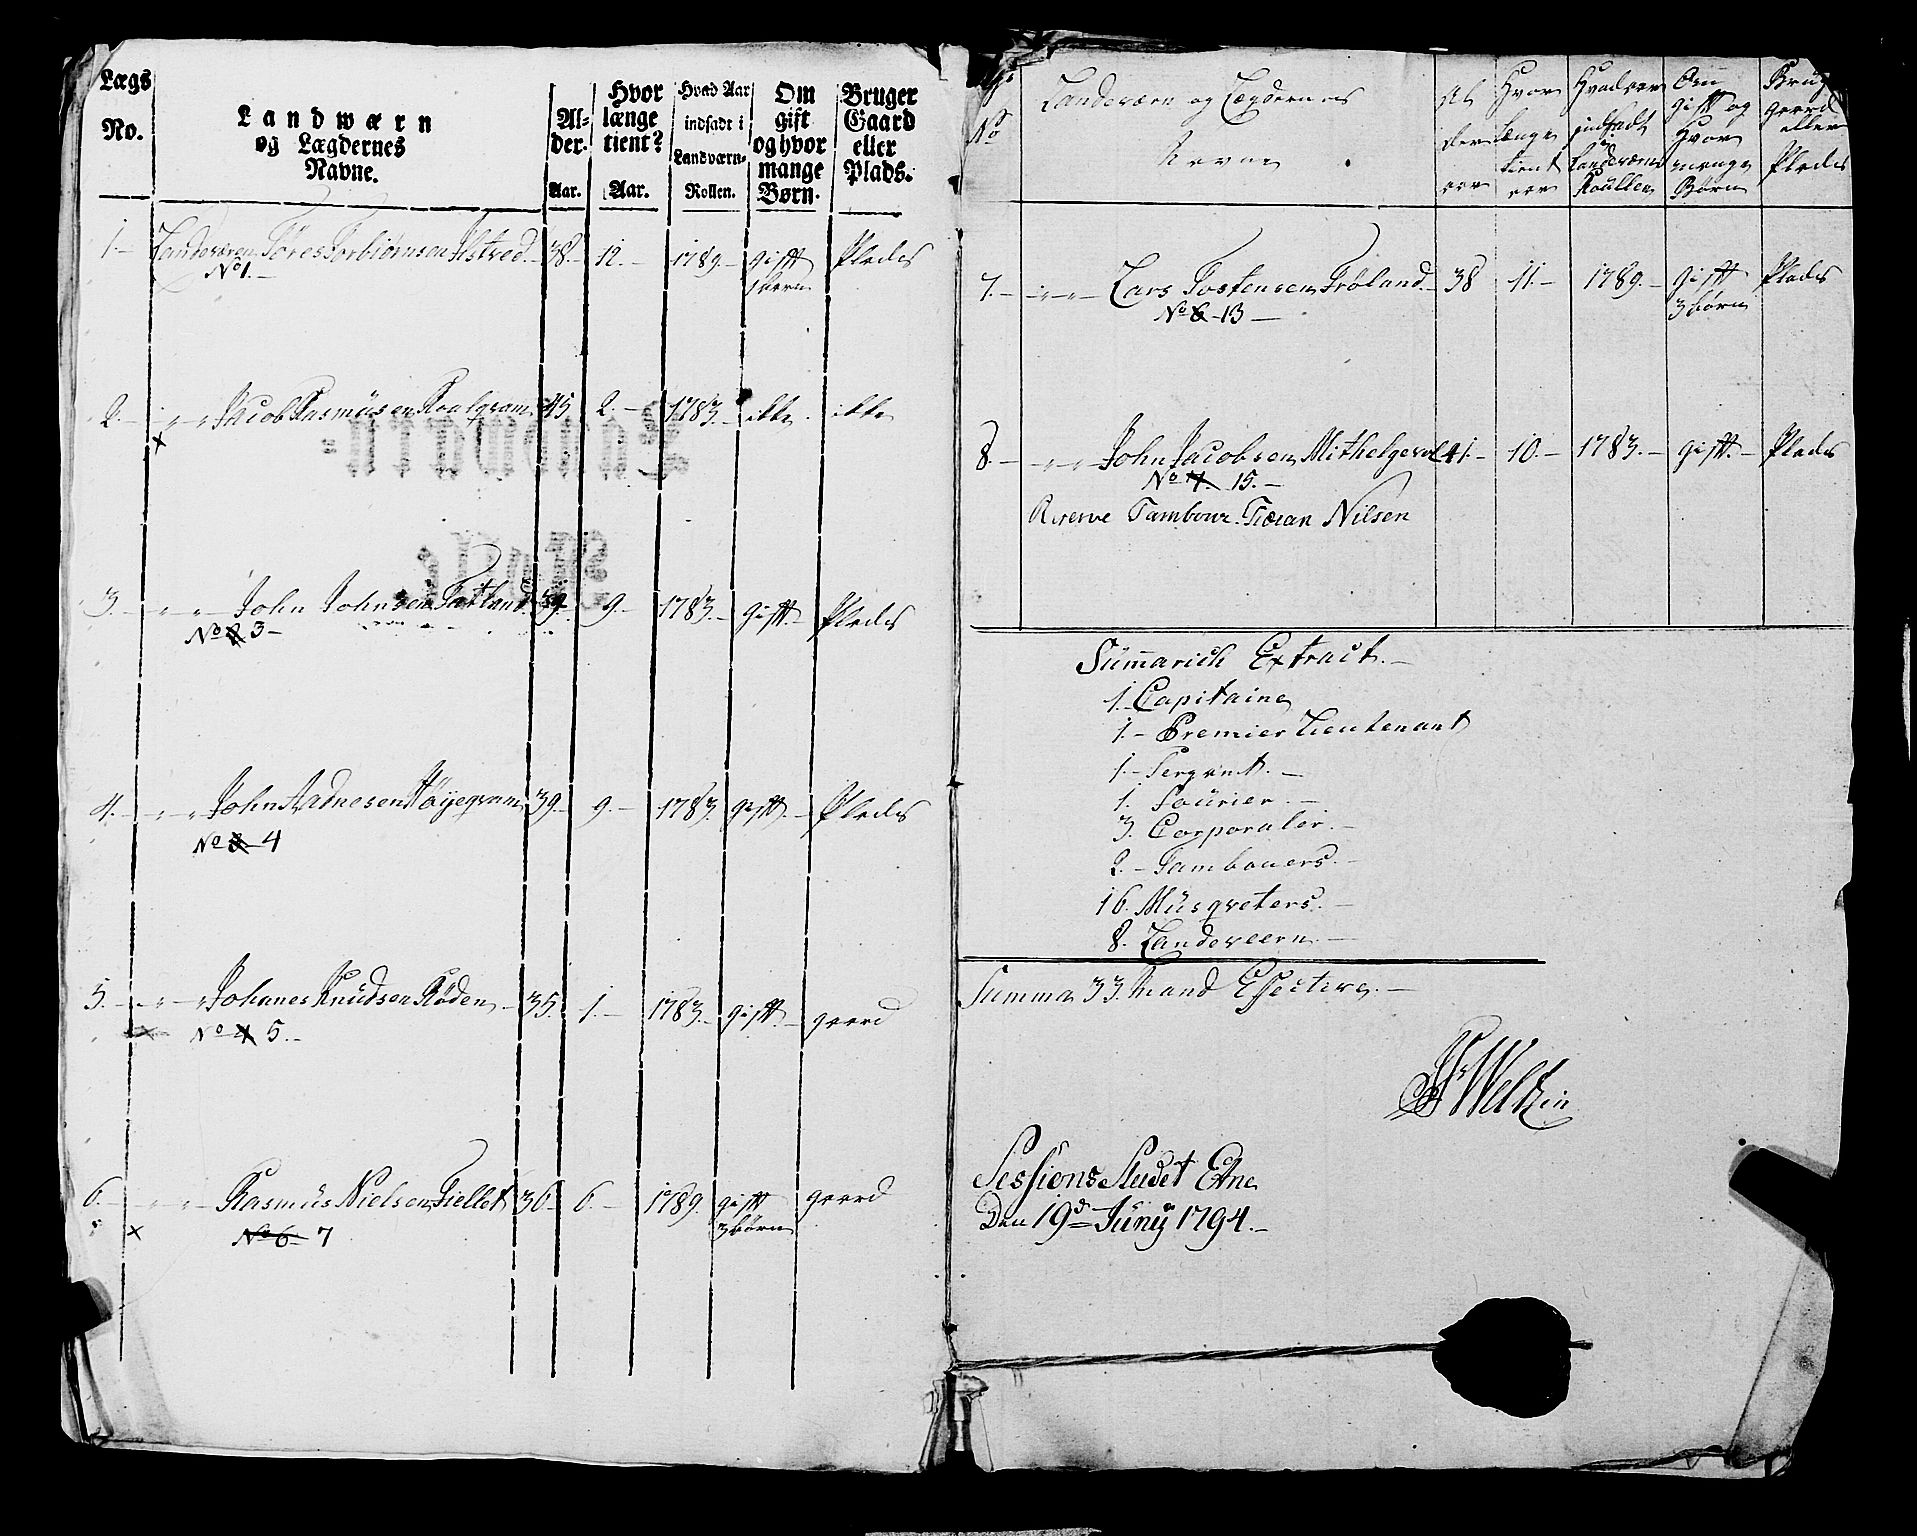 Lægs No.
Landwærn og Lægdernes Navne.
Al-der. Aar.
Hvor længe tient? Aar.
Hvad Aar indsadt i Landværn-Rollen.
Om gift og hvor mange Børn.
Bruger Gaard eller Plads.
1.- Landeværn Töres Torbiörnsen 38.- 12.- 1789.- gift Plads
No 1.- børn
2.- " " Jacob Rasmüsen 45 2.- 1783.- ikke ikke
x
3.- " " John Johnsen Tatland 39.- 9.- 1783.- gift.- Plads
No 2 3-
4.- " " John Aadnesen Höÿegram 39.- 9.- 1783. gift.- Plads
No 3 4
5.- " " Johanes Knüdsen Röden 35. 1.- 1783.- gift.- gaard
x No 4 5.-
6.- " " Rasmüs Nielsen Fiellet 36 6.- 1789. gift gaard
x No 6 7 3 børn
Lægs No
Landeværn og Lægdernes Navne
Al der aar
Hvor længe tient aar
Hvad aar indsadt i Landeværns Roullen
Om gift og Hvor mange Börn
Brug gaard eller Plads
7.- " " Lars Tostensen Fröland.- 38 11.- 1789.- gift Plads
No 6 13 - 3 börn
8.- " " John Jacobsen 41.- 10.- 1783.- gift.- Plads
No 7. 15.-
Reserve Tambour Nilsen
Summarich Extract.-
1. Capitaine
1.- Premier Lieutenant
1.- Sergent.-
1. Fourier.-
3. Corporaler.-
2.- Tambouers.-
16. Müsqveters.-
8. Landeværn.-
Summa 33. Mand Effective.-
Weltzin
Sessions Stedet Etne
Den 19de Junij 1794.-